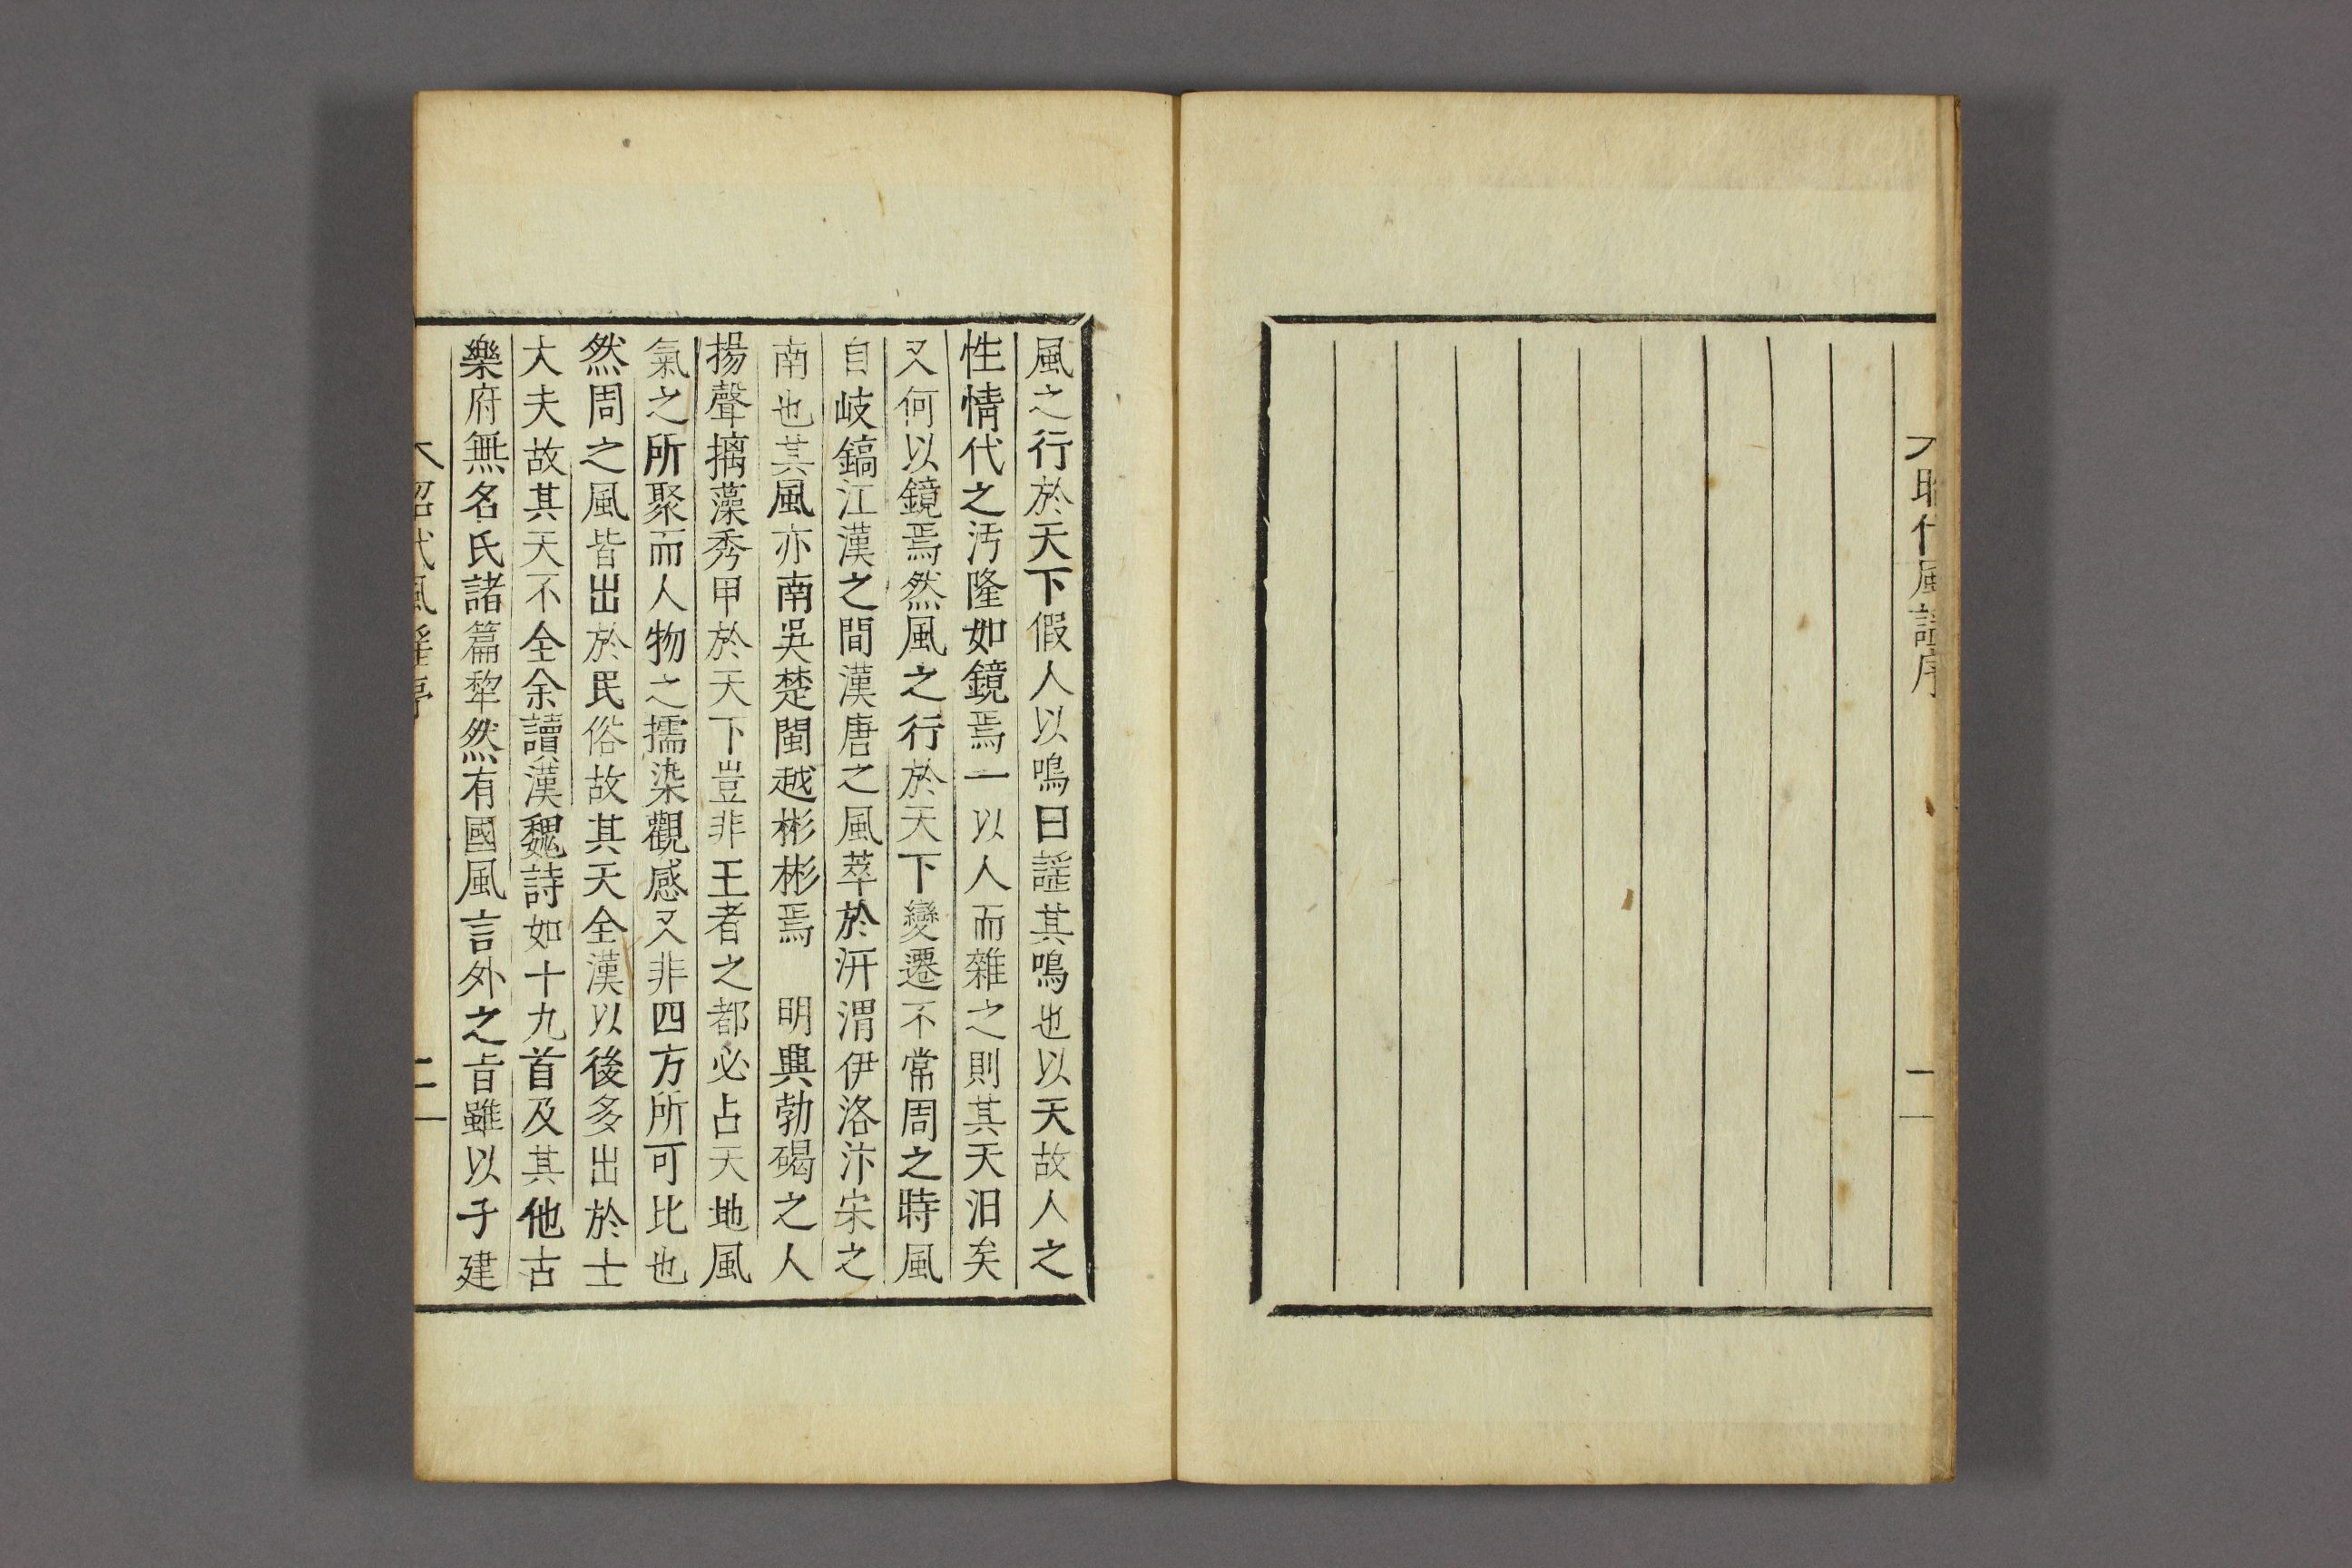 昭代風謡序
一
風之行於天下假人以鳴曰謡其鳴也以天故人之
性情代之汚隆如鏡焉一以人而雜之則其天汨矣
又何以鏡焉然風之行於天下變遷不常周之時風
自岐鎬江漢之間漢唐之風萃於汧渭伊洛汴宋之
南也其風亦南吳楚閩越彬彬焉　明興勃碣之人
揚聲摛藻秀甲於天下豈非王者之都必占天地風
氣之所聚而人物之擩染觀感又非四方所可比也
然周之風皆出於民俗故其天全漢以後多出於士
大夫故其天不全余讀漢魏詩如十九首及其他古
樂府無名氏諸篇犂然有國風言外之旨雖以子建
昭代風謡序
二